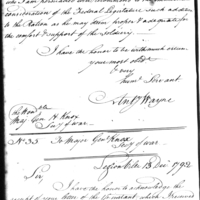 consideration of the Federal Legislature such addition
to the Ration as he may deem proper & adequate for
the comfort & support of the Soldiery
I have the honor to be with much esteem
your most obt
& very
huml Servant
Anty Wayne
The Honble
Maj Genl H Knox
Secy of war
No 33 To Major Genl Knox
Secy of war
Legion Ville 13 Decr 1792
Sir
I have the honor to acknowledge the
of your letter of the Instant which I received